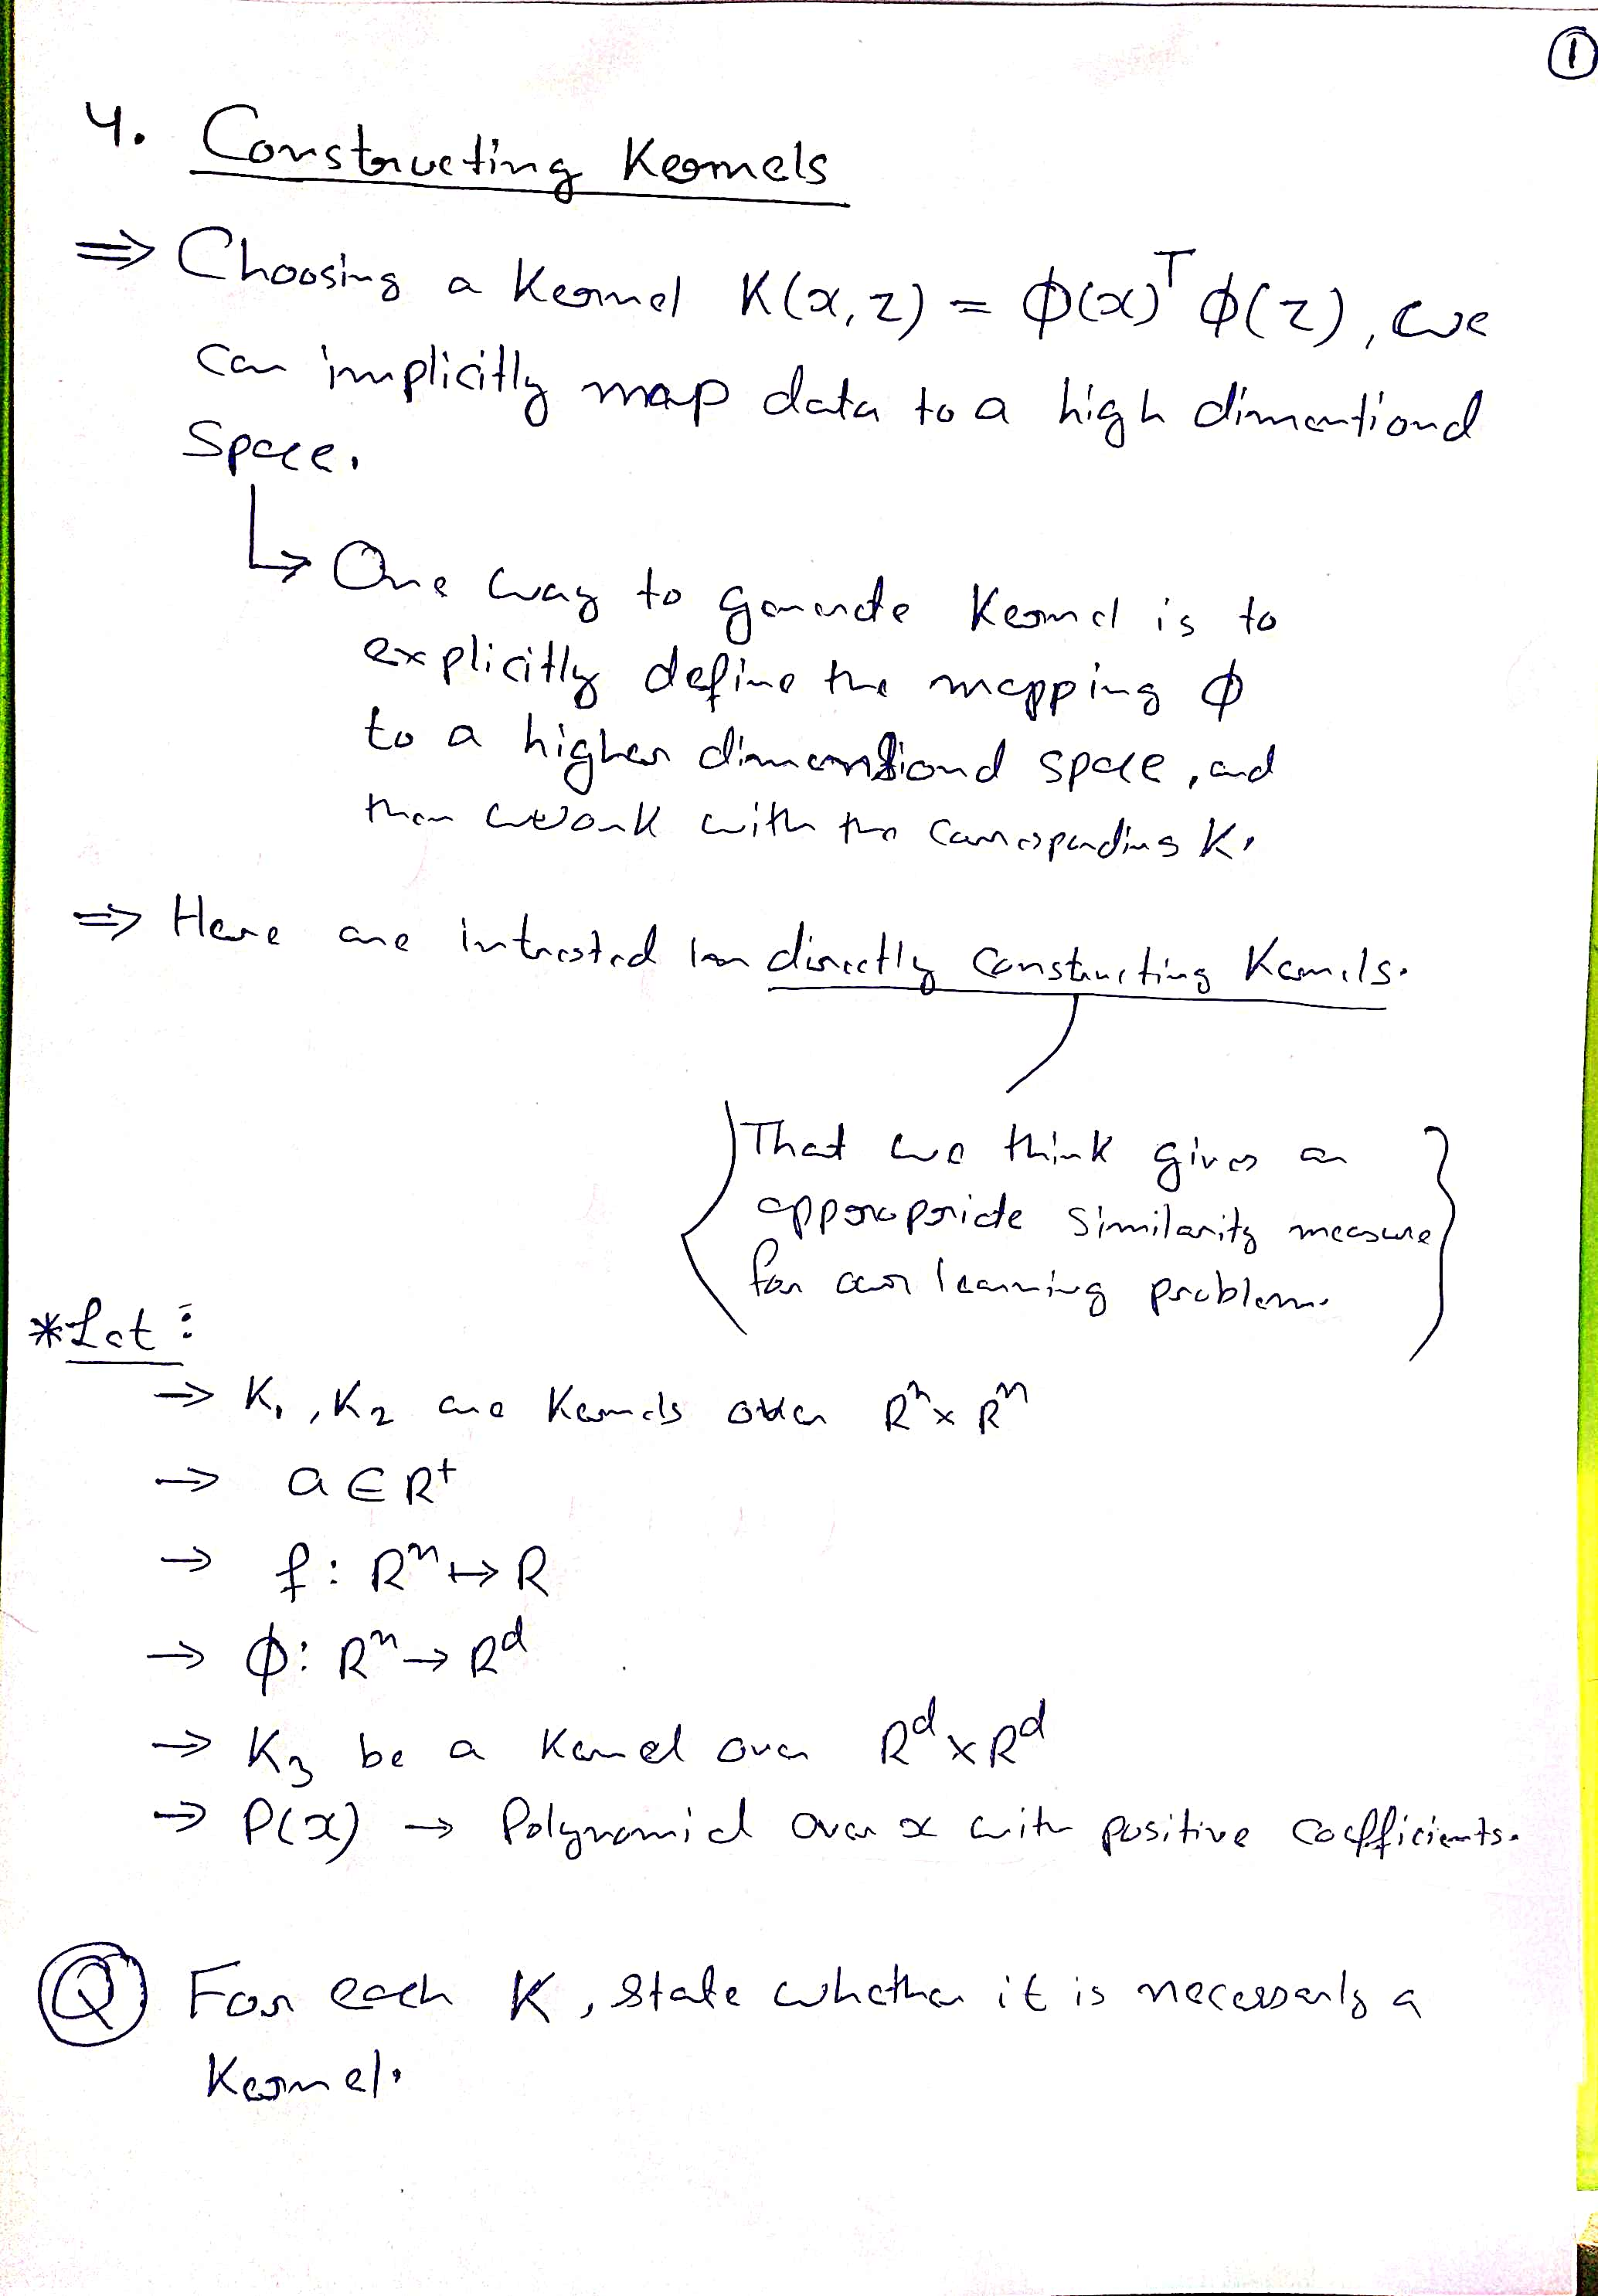 ①
4. Constructing Kernels
⇒ Choosing a Kernel K(x, z) = ϕ(x)ᵀ ϕ(z), we
can implicitly map data to a high dimentional
Space.
↳ One way to generate Kernel is to
explicitly define the mapping ϕ
to a higher dimensional space, and
then work with the corresponding K.
⇒ Here are intrested in directly constructing Kernels.
{ That we think gives an
appropriate similarity measure
for our learning problem. }
* Let :
→ K₁, K₂ are Kernels over Rⁿ x Rⁿ
→ a ∈ R⁺
→ f : Rⁿ ↦ R
→ ϕ : Rⁿ → Rᵈ
→ K₃ be a Kernel over Rᵈ x Rᵈ
→ P(x) → Polynomial over x with positive coefficients.
Q For each K, state whether it is necessarly a
Kernel.